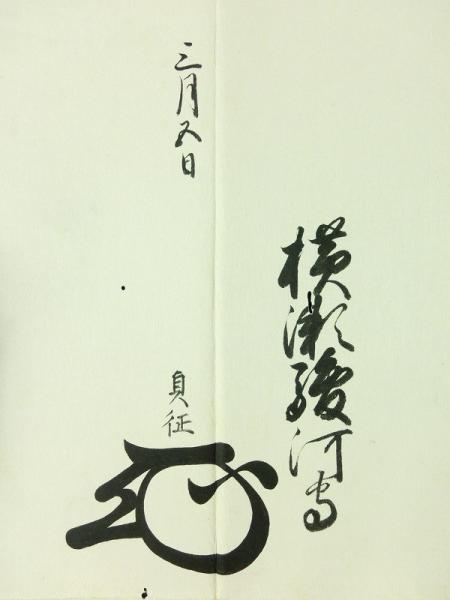 横瀬駿河守
三月五日
貞征